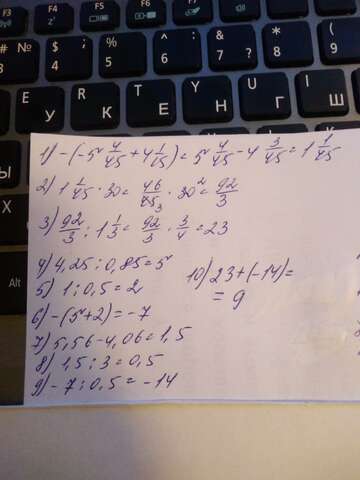 F3 F4 F5 F6 F7 F8
# № $ ; 4 % 5 ^ : 6 & ? 7 * 8
У К Е Н Г Ш
1) -(-5 4/45 + 4 1/15) = 5 4/45 - 4 3/45 = 1 1/45
2) 1 1/45 · 30 = 46/45 3 · 30 2 = 92/3
3) 92/3 : 1 1/3 = 92/3 · 3/4 = 23
4) 4,25 : 0,85 = 5
5) 1 : 0,5 = 2
6) -(5+2) = -7
7) 5,56 - 4,06 = 1,5
8) 1,5 : 3 = 0,5
9) -7 : 0,5 = -14
10) 23 + (-14) =
= 9